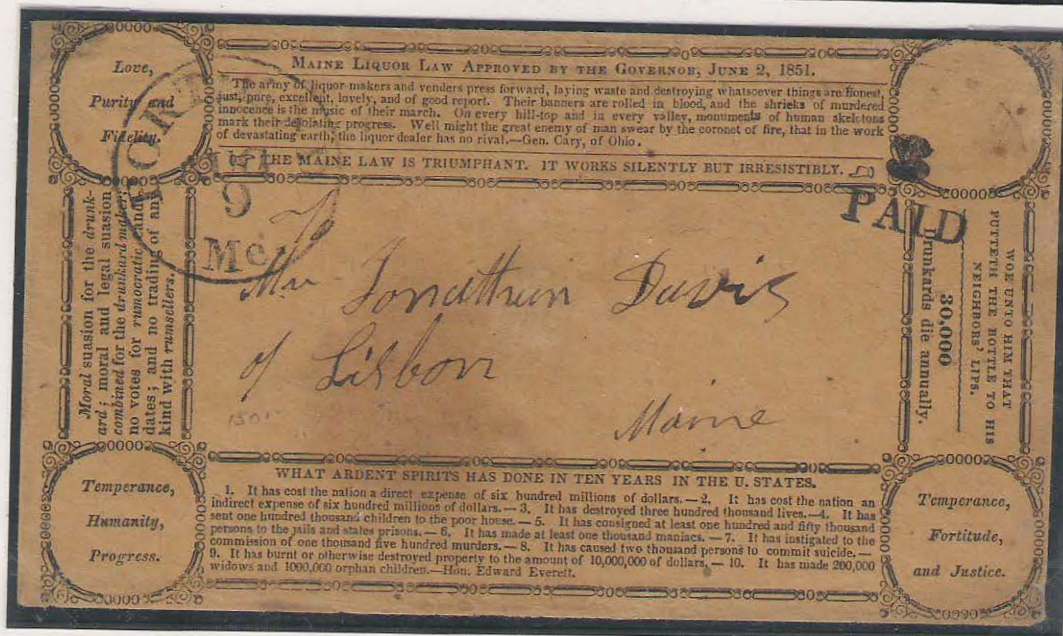 Love,
Purity and
Fidelity.
MAINE LIQUOR LAW APPROVED BY THE GOVERNOR, JUNE 2, 1851.
The army of liquor makers and venders press forward, laying waste and destroying whatsoever things are honest,
just, pure, excellent, lovely, and of good report. Their banners are rolled in blood, and the shrieks of murdered
innocence is the music of their march. On every hill-top and in every valley, monuments of human skeletons
mark their desolating progress. Well might the great enemy of man swear by the coronet of fire, that in the work
of devastating earth, the liquor dealer has no rival.—Gen. Cary, of Ohio.
THE MAINE LAW IS TRIUMPHANT. IT WORKS SILENTLY BUT IRRESISTIBLY.
9
Me
PAID
Moral suasion for the drunk-
ard; moral and legal suasion
combined for the drunkard maker;
no votes for rumocratic candi-
dates; and no trading of any
kind with rumsellers.
Mr Jonathan Davis
of Lisbon
Maine
WOE UNTO HIM THAT
PUTTETH THE BOTTLE TO HIS
NEIGHBORS' LIPS.
30,000
Drunkards die annually.
Temperance,
Humanity,
Progress.
WHAT ARDENT SPIRITS HAS DONE IN TEN YEARS IN THE U. STATES.
1. It has cost the nation a direct expense of six hundred millions of dollars.—2. It has cost the nation an
indirect expense of six hundred millions of dollars.—3. It has destroyed three hundred thousand lives.—4. It has
sent one hundred thousand children to the poor house.—5. It has consigned at least one hundred and fifty thousand
persons to the jails and states prisons.—6. It has made at least one thousand maniacs.—7. It has instigated to the
commission of one thousand five hundred murders.—8. It has caused two thousand persons to commit suicide.—
9. It has burnt or otherwise destroyed property to the amount of 10,000,000 of dollars,—10. It has made 200,000
widows and 1000,000 orphan children.—Hon. Edward Everett.
Temperance,
Fortitude,
and Justice.